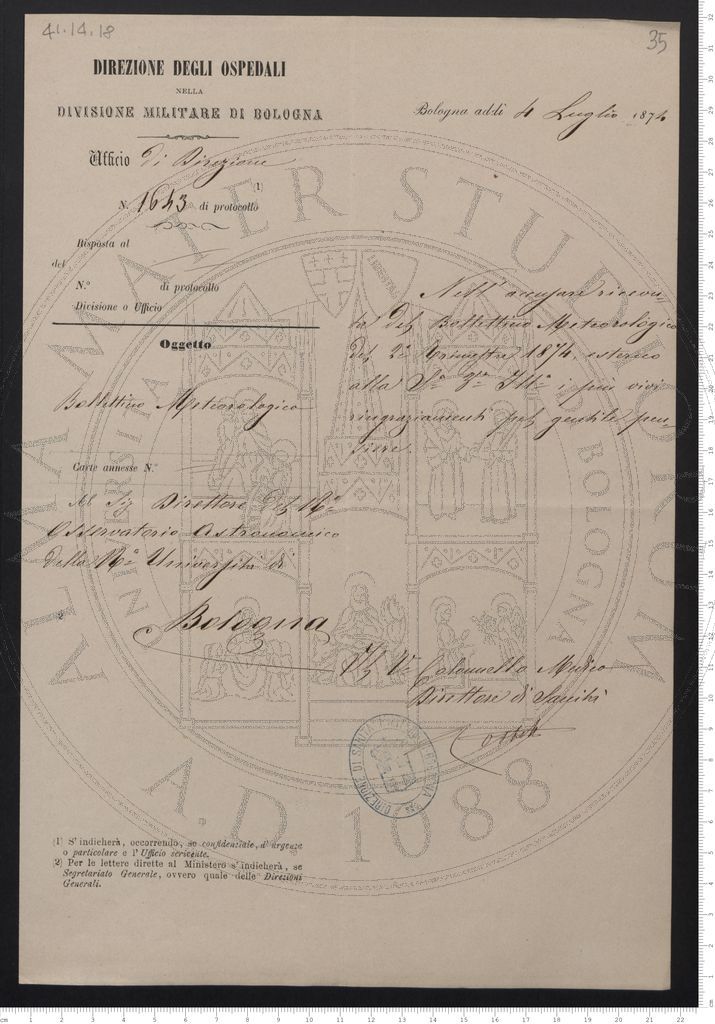 41.14.18
35
DIREZIONE DEGLI OSPEDALI
NELLA
DIVISIONE MILITARE DI BOLOGNA
Bologna addì 4 Luglio 1874
Ufficio di Direzione
(1)
N. 1643 di protocollo
Risposta al
del
N.° di protocollo
Divisione o Ufficio
Oggetto
Bollettino Meteorologico
Carte annesse N.°
Al Sig Direttore del R.°
Osservatorio Astronomico
della R.a Università di
Bologna
Nell'accusare ricevu-
ta del Bollettino Meteorologico
del 2° Trimestre 1874. esterno
alla S.a Ill.a i più vivi
ringraziamenti pel gentile pen-
siero.
Il Colonnello Medico
Direttore di Sanità
DIREZIONE DI SANITÀ BOLOGNA
(1) S'indicherà, occorrendo, se confidenziale, d'urgenza
o particolare e l'Ufficio scrivente.
(2) Per le lettere dirette al Ministero s'indicherà, se
Segretariato Generale, ovvero quale delle Direzioni
Generali.
ALMA MATER STUDIORUM
UNIVERSITÀ DI BOLOGNA
A.D. 1088